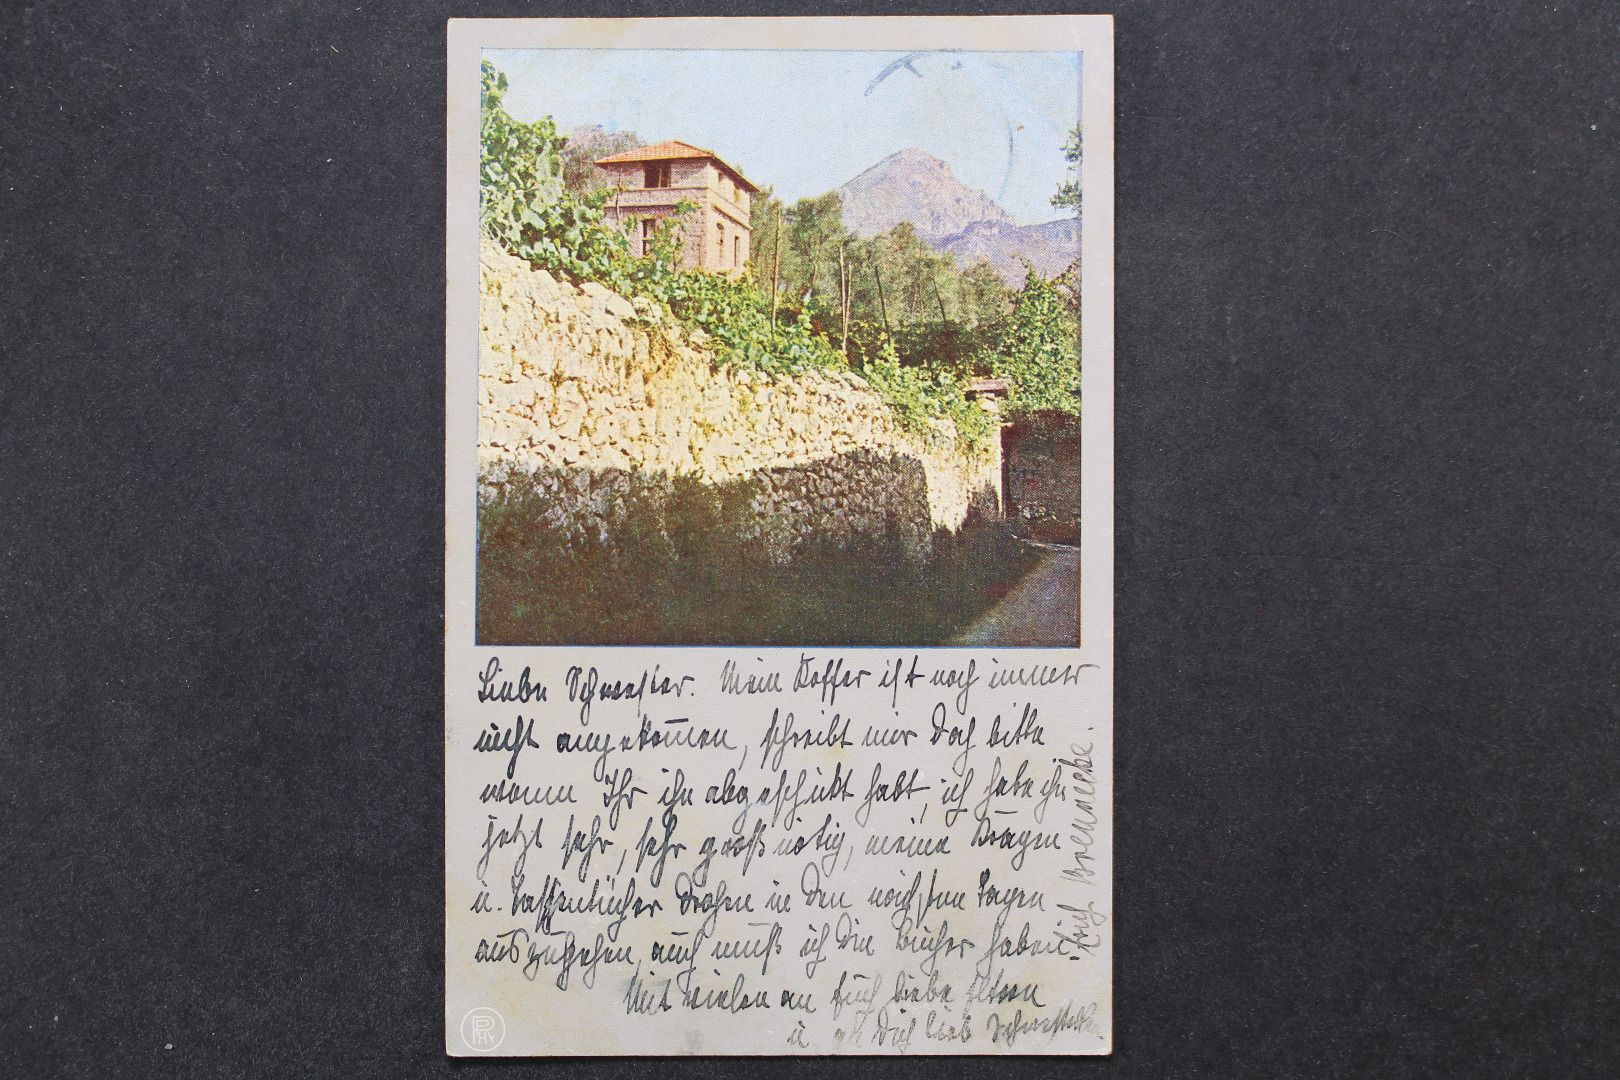 Liebe Schwester. Mein Koffer ist noch immer
nicht angekom̅en, schreibt mir doch bitte
wann Ihr ihn abgeschickt habt, ich habe ihn
jetzt sehr, sehr groß nötig, meine Kragen
u. Taschentücher drohen in den nächsten Tagen
auszugehen, auch muß ich die Bücher haben.
Mit vielen an Euch liebe Eltern
u Dich lieb Schwesterlein
Euch